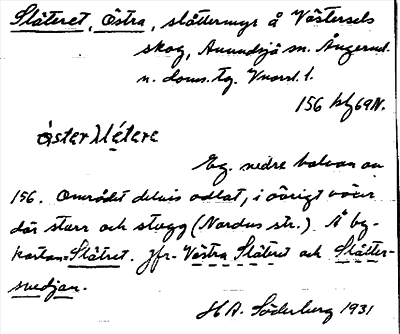 Släteret, Östra, slåttermyr å Västersels
skog, Anundsjö sn. Ångerml.
n. doms. tg. Vnorrl. l.
156 kbl 69N.
öster slétere
Eg. nedre halvan av
156. Området delvis odlat, i övrigt växer
där starr och stagg (Nardus str.). Å by-
kartan = Slätret. Jfr. Västra Släteret och Slåtter-
svedjan.
H A. Söderberg 1931